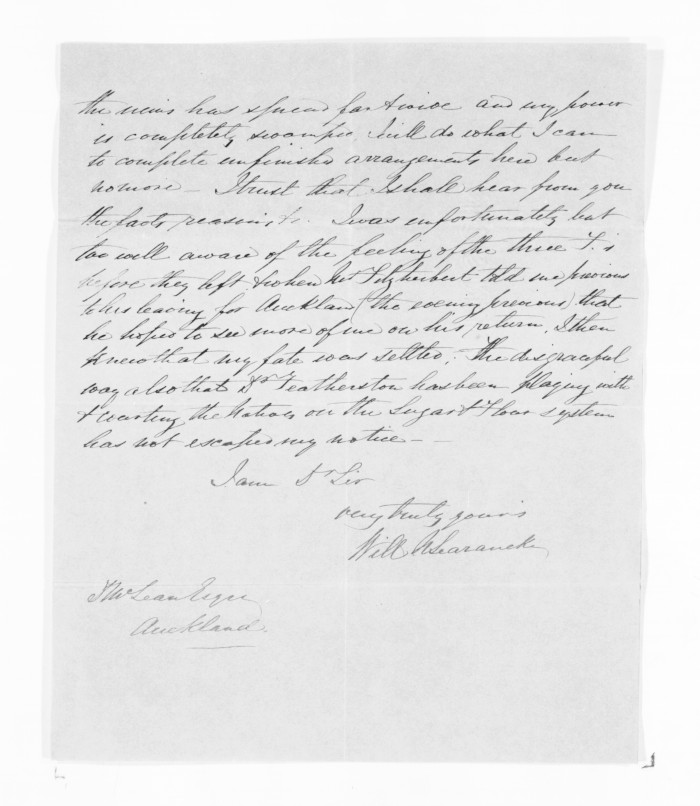 the news has spread far & wide and my power
is completely swamped I will do what I can
to complete unfinished arrangements here but
no more – I trust that I shall hear from you
the facts reasons &c. I was unfortunately but
too well aware of the feeling of the three F.s
before they left & when Mr Fitzherbert told me previous
to his leaving for Auckland (the evening previous) that
he hoped to see more of me on his return, I then
knew that my fate was settled; The disgraceful
way also that Dr Featherston has been playing with
& courting the Natives on the Sugar & Flour system
has not escaped my notice –
I am Dr Sir
very truly yours
Will N Searancke
McLean Esqre
Auckland.